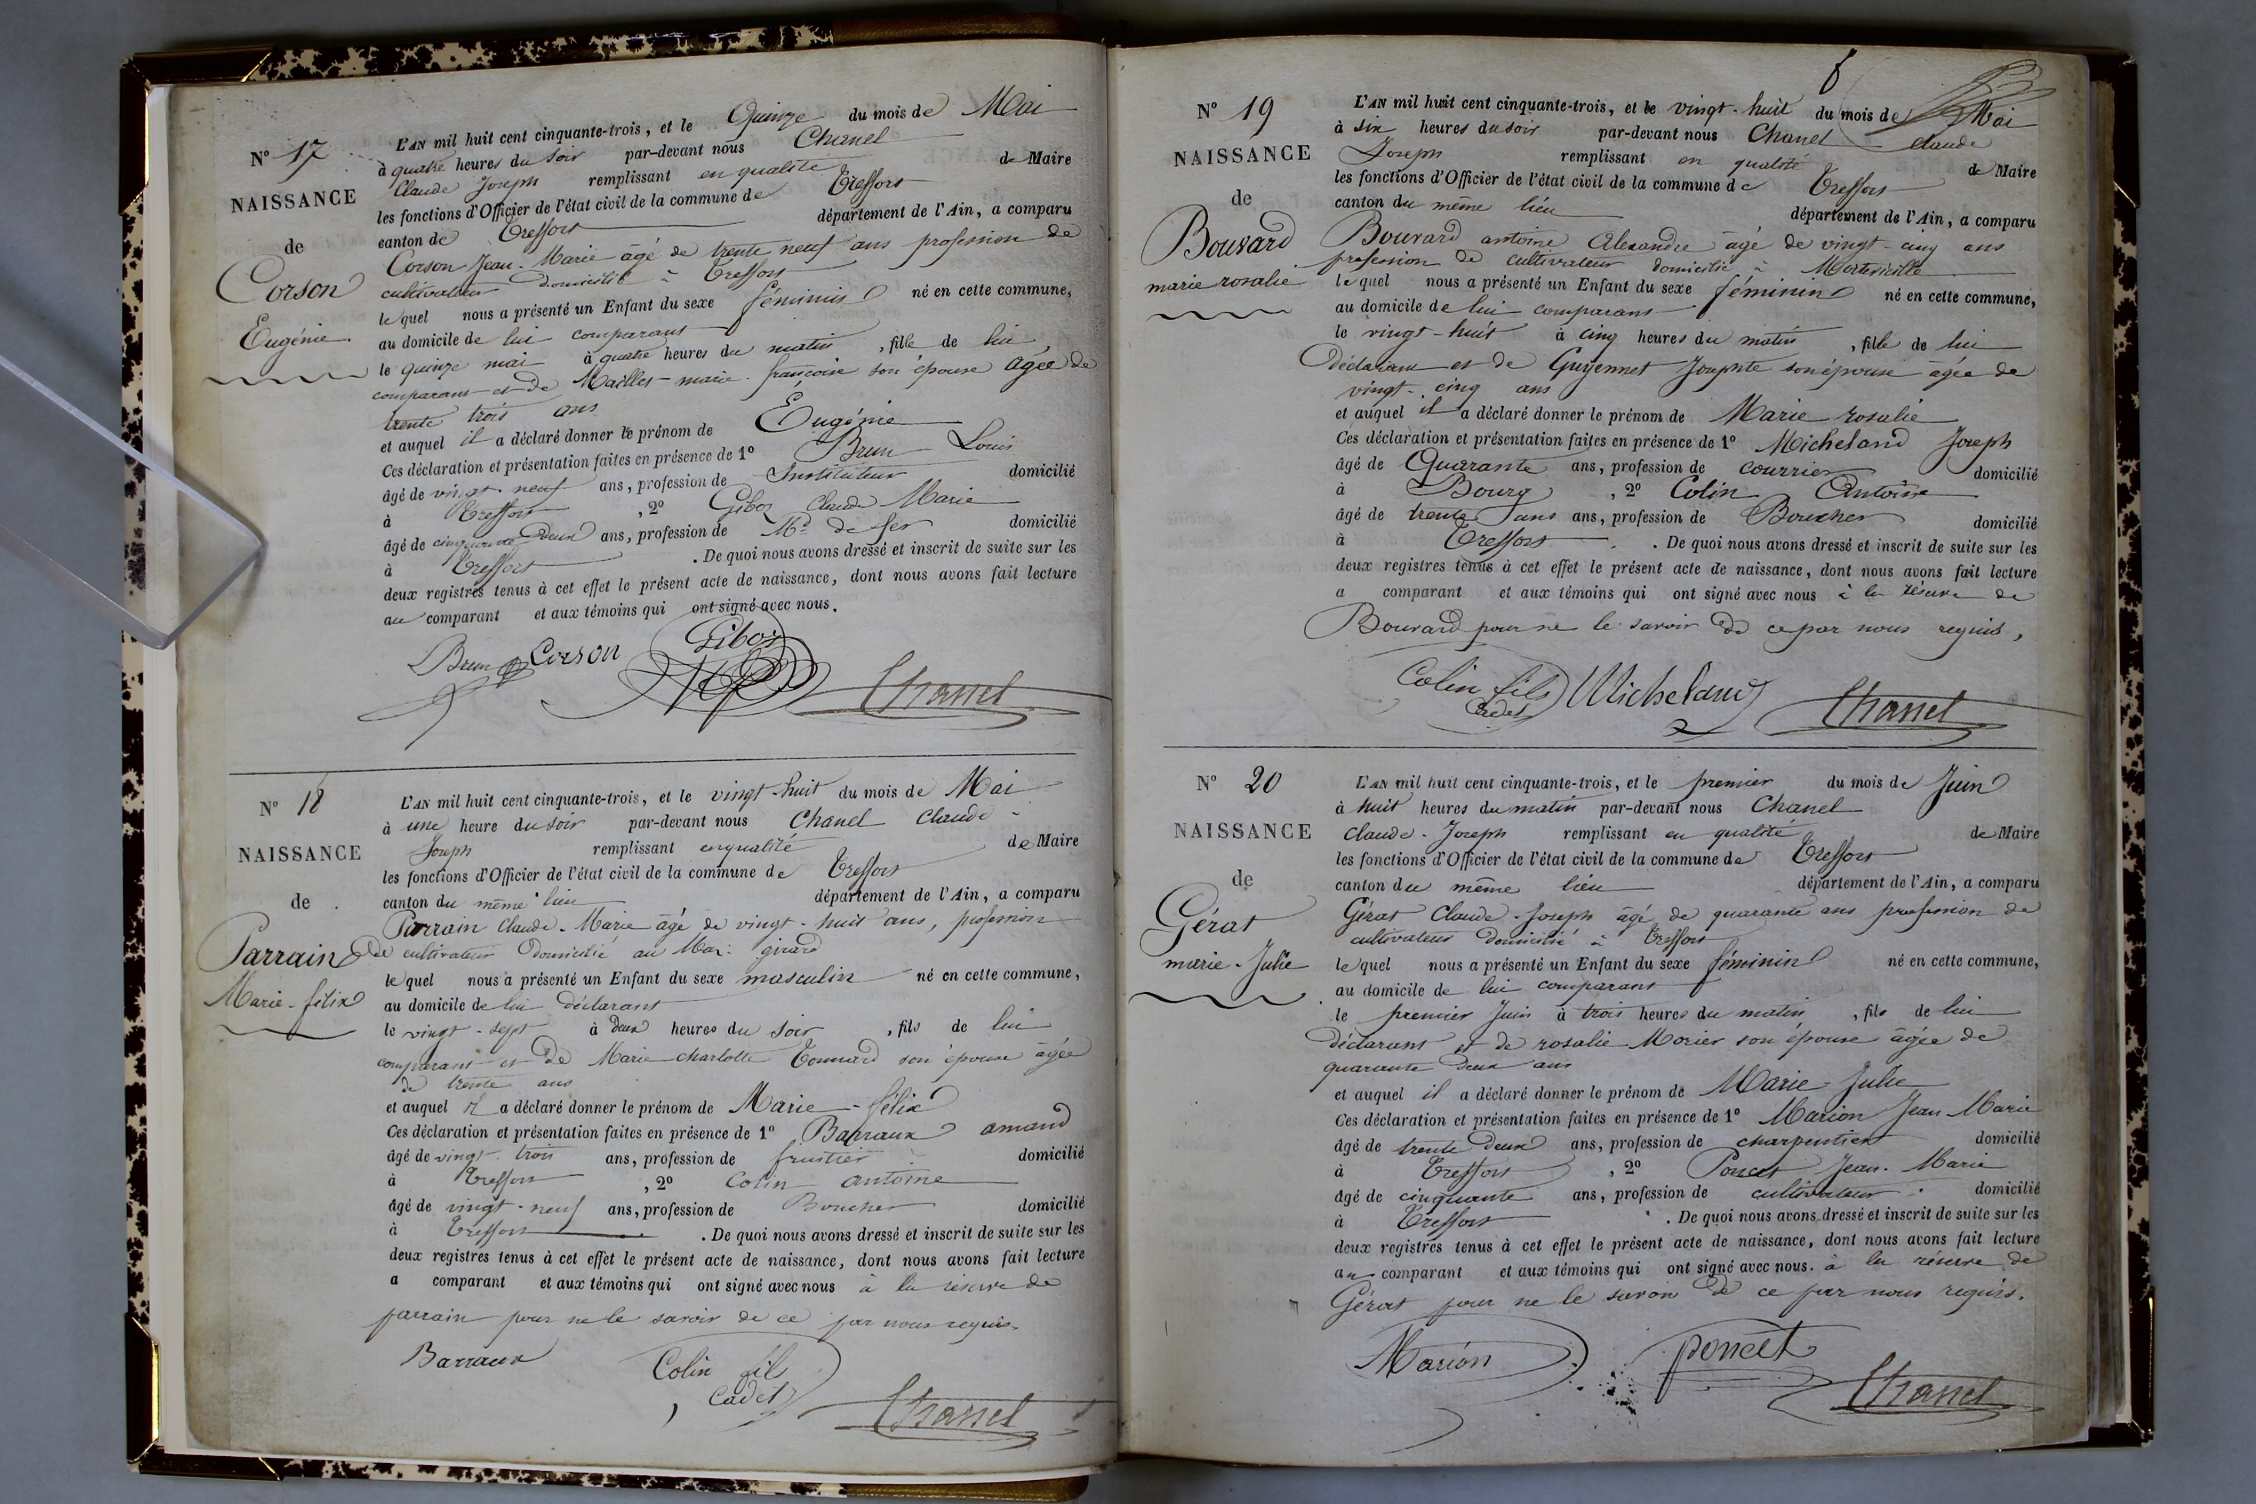 N° 17
NAISSANCE
de
Corson
Eugénie
L'AN mil huit cent cinquante-trois, et le Quinze du mois de Mai
à quatre heures du soir par-devant nous Chanel
Claude Joseph remplissant en qualité de Maire
les fonctions d'Officier de l'état civil de la commune de Treffort
canton de Treffort département de l'Ain, a comparu
Corson Jean-Marie âgé de trente neuf ans profession de
cultivateur domicilié à Treffort
lequel nous a présenté un Enfant du sexe féminin né en cette commune,
au domicile de lui comparant
le quinze mai à quatre heures du matin, fille de lui
comparant et de Maillet marie françoise son épouse agée de
trente trois ans
et auquel il a déclaré donner le prénom de Eugénie
Ces déclaration et présentation faites en présence de 1° Brun Louis
âgé de vingt-neuf ans, profession de Instituteur domicilié
à Treffort, 2° Giboz Claude Marie
âgé de cinquante Deux ans, profession de Md de fer domicilié
à Treffort. De quoi nous avons dressé et inscrit de suite sur les
deux registres tenus à cet effet le présent acte de naissance, dont nous avons fait lecture
au comparant et aux témoins qui ont signé avec nous.
Brun Corson Giboz
Chanel
N° 18
NAISSANCE
de
Parrain
Marie-félix
L'AN mil huit cent cinquante-trois, et le vingt-huit du mois de Mai
à une heure du soir par-devant nous Chanel Claude
Joseph remplissant en qualité de Maire
les fonctions d'Officier de l'état civil de la commune de Treffort
canton du même lieu département de l'Ain, a comparu
Parrain Claude-Marie âgé de vingt-huit ans, profession
de cultivateur domicilié au Mar: girard
lequel nous a présenté un Enfant du sexe masculin né en cette commune,
au domicile de lui déclarant
le vingt-sept à deux heures du soir, fils de lui
comparant et de Marie charlotte Tonnard son épouse âgée
de trente ans
et auquel il a déclaré donner le prénom de Marie-félix
Ces déclaration et présentation faites en présence de 1° Barraux amand
âgé de vingt-trois ans, profession de fruitier domicilié
à Treffort, 2° Colin antoine
âgé de vingt-neuf ans, profession de Boucher domicilié
à Treffort. De quoi nous avons dressé et inscrit de suite sur les
deux registres tenus à cet effet le présent acte de naissance, dont nous avons fait lecture
a comparant et aux témoins qui ont signé avec nous à la réserve de
parrain pour ne le savoir de ce par nous requis.
Barraux Colin fils
cadet
Chanel
6
N° 19
NAISSANCE
de
Bouvard
marie rosalie
L'AN mil huit cent cinquante-trois, et le vingt-huit du mois de Mai
à six heures du soir par-devant nous Chanel claude
Joseph remplissant en qualité de Maire
les fonctions d'Officier de l'état civil de la commune de Treffort
canton du même lieu département de l'Ain, a comparu
Bouvard antoine Alexandre âgé de vingt-cinq ans
profession de cultivateur domicilié à
lequel nous a présenté un Enfant du sexe féminin né en cette commune,
au domicile de lui comparant
le vingt-huit à cinq heures du matin, fille de lui
déclarant et de Guyennet Josephte son épouse âgée de
vingt-cinq ans
et auquel il a déclaré donner le prénom de Marie rosalie
Ces déclaration et présentation faites en présence de 1° Micheland Joseph
âgé de Quarante ans, profession de courrier domicilié
à Bourg, 2° Colin Antoine
âgé de trente ans ans, profession de Boucher domicilié
à Treffort. De quoi nous avons dressé et inscrit de suite sur les
deux registres tenus à cet effet le présent acte de naissance, dont nous avons fait lecture
a comparant et aux témoins qui ont signé avec nous à la réserve de
Bouvard pour ne le savoir de ce par nous requis,
Colin fils Micheland
cadet
Chanel
N° 20
NAISSANCE
de
Gérat
marie-Julie
L'AN mil huit cent cinquante-trois, et le premier du mois de Juin
à huit heures du matin par-devant nous Chanel
Claude-Joseph remplissant en qualité de Maire
les fonctions d'Officier de l'état civil de la commune de Treffort
canton du même lieu département de l'Ain, a comparu
Gérat Claude-Joseph âgé de quarante ans profession de
cultivateur domicilié à Treffort
lequel nous a présenté un Enfant du sexe féminin né en cette commune,
au domicile de lui comparant
le premier Juin à trois heures du matin, fils de lui
déclarant et de rosalie Morier son épouse âgée de
quarante deux ans
et auquel il a déclaré donner le prénom de Marie Julie
Ces déclaration et présentation faites en présence de 1° Marion Jean Marie
âgé de trente deux ans, profession de charpentier domicilié
à Treffort, 2° Poncet Jean-Marie
âgé de cinquante ans, profession de cultivateur domicilié
à Treffort. De quoi nous avons dressé et inscrit de suite sur les
deux registres tenus à cet effet le présent acte de naissance, dont nous avons fait lecture
au comparant et aux témoins qui ont signé avec nous. à la réserve de
Gérat pour ne le savoir de ce par nous requis.
Marion poncet
Chanel